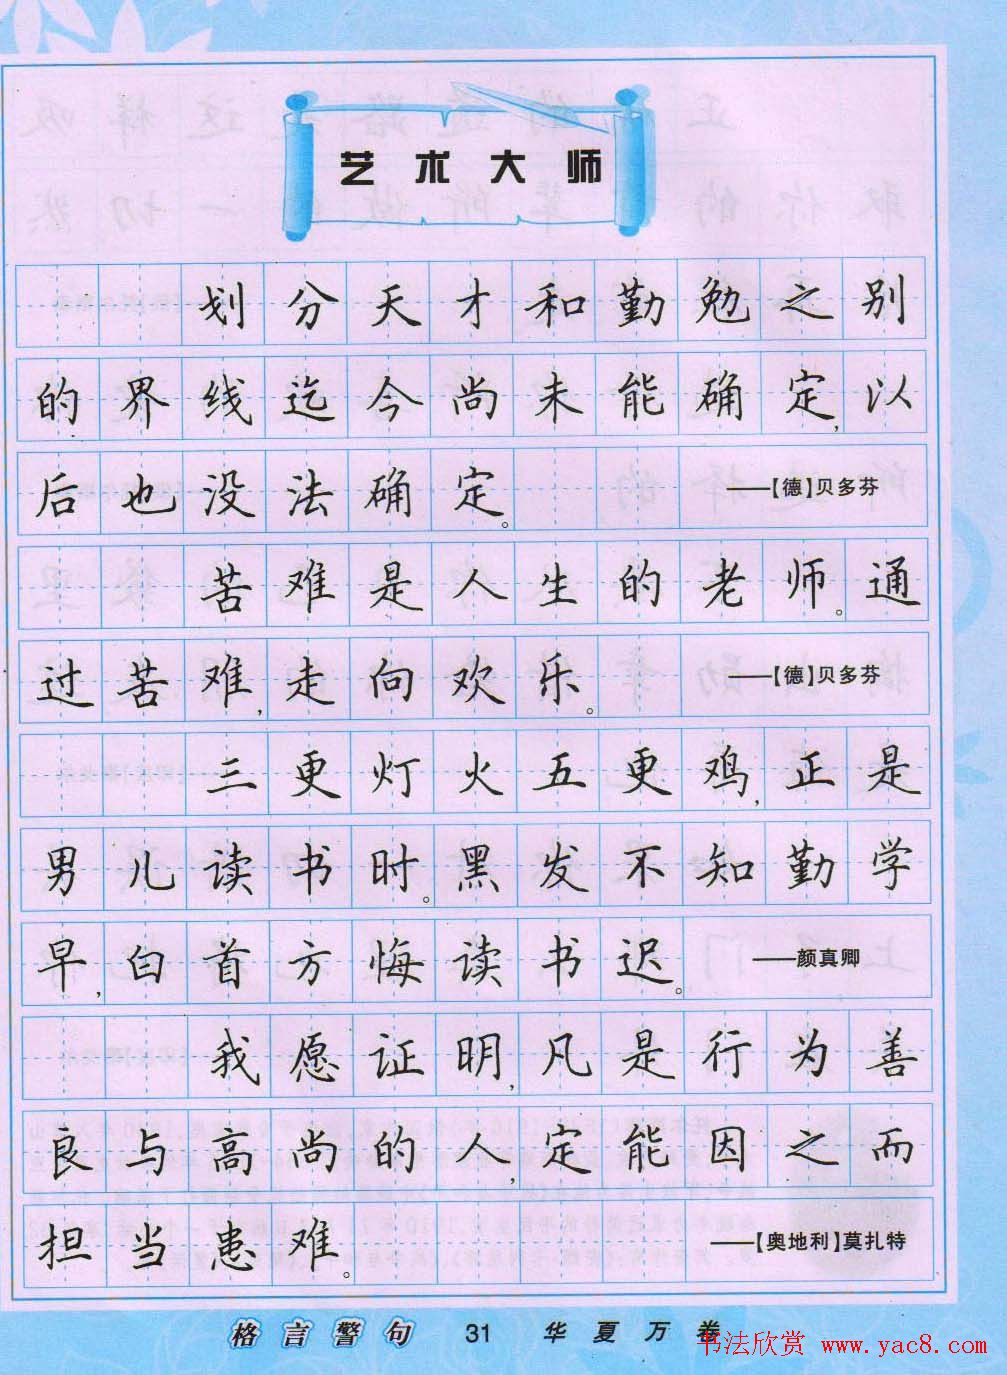 艺术大师
划分天才和勤勉之别
的界线迄今尚未能确定,以
后也没法确定。 ——【德】贝多芬
苦难是人生的老师。通
过苦难,走向欢乐。 ——【德】贝多芬
三更灯火五更鸡,正是
男儿读书时。黑发不知勤学
早,白首方悔读书迟。 ——颜真卿
我愿证明,凡是行为善
良与高尚的人,定能因之而
担当患难。 ——【奥地利】莫扎特
格言警句 31 华夏万卷
书法欣赏 www.yac8.com